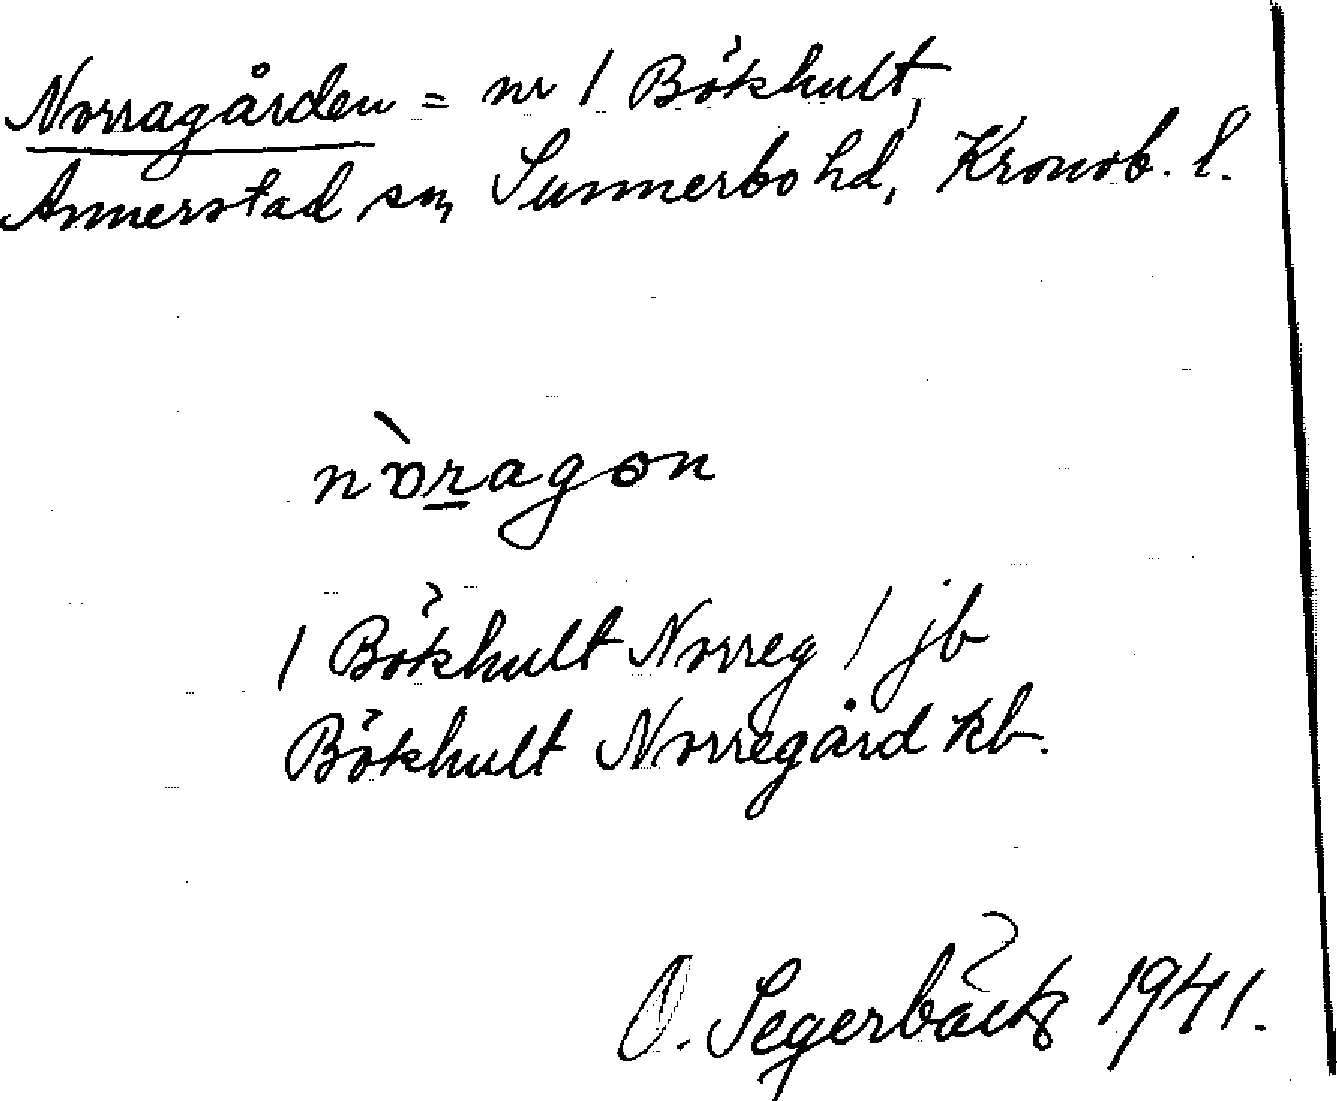 Norragården = nr 1 Bökhult,
Annerstad sn, Sunnerbo hd, Kronob. l.
nòragɵn
1 Bökhult Norreg 1 jb
Bökhult Norregård kb.
O. Segerbäck 1941.